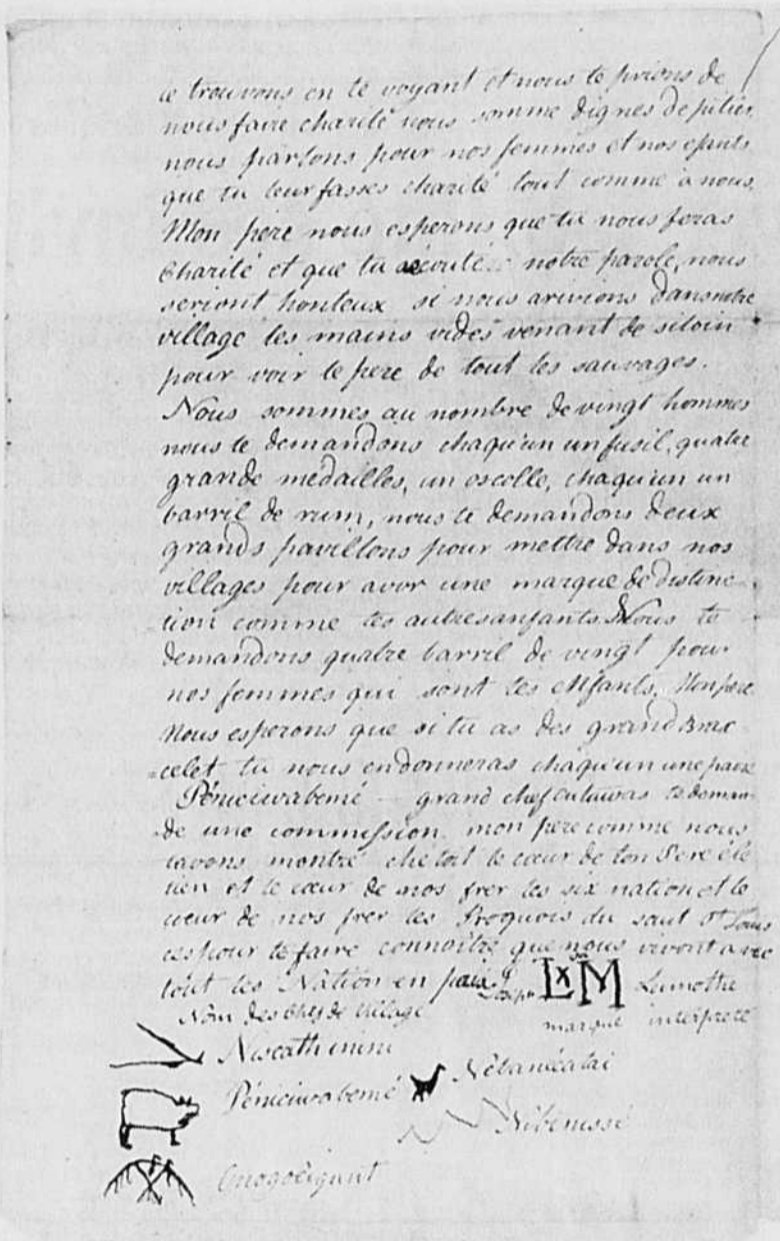 ce trouvons en te voyant et nous te prions de
nous faire charité nous somme dignes de pitier
nous parlons pour nos femmes et nos efants
que tu leur fasses charité tout comme à nous,
Mon père nous esperons que tu nous feras
Charité et que tu écouté notre parole, nous
seriont honteux si nous arivions dans notre
village les mains vides venant de siloin
pour voir le pere de tout les sauvages.
Nous sommes au nombre de vingt hommes
nous te demandons chaqu'un un fusil, quatre
grande medailles, un escolle, chaqu'un un
barril de rum, nous te demandons deux
grands pavillons pour mettre dans nos
villages pour avor une marque de distinc-
tion comme tes autres anfants. Nous te
demandons quatre barril de vingt pour
nos femmes qui sont tes enfants, Mon pere
Nous esperons que si tu as des grand Brac
=celet tu nous en donneras chaqu'un une paire
Péneciwabemé grand chef te deman-
-de une commission mon pere comme nous
tavons montré le cœur de ton
et le cœur de nos frer les six nation et le
cœur de nos frer les Iroquois du saut St Louis
ces pour te faire connoître que nous vivont avec
tout les Nation en paix
Joseph L x M Lamothe
marque interprete
Nom des chefs de village
Niscathinini
Nébanéatai
Péneciwabemé
Nibinissé